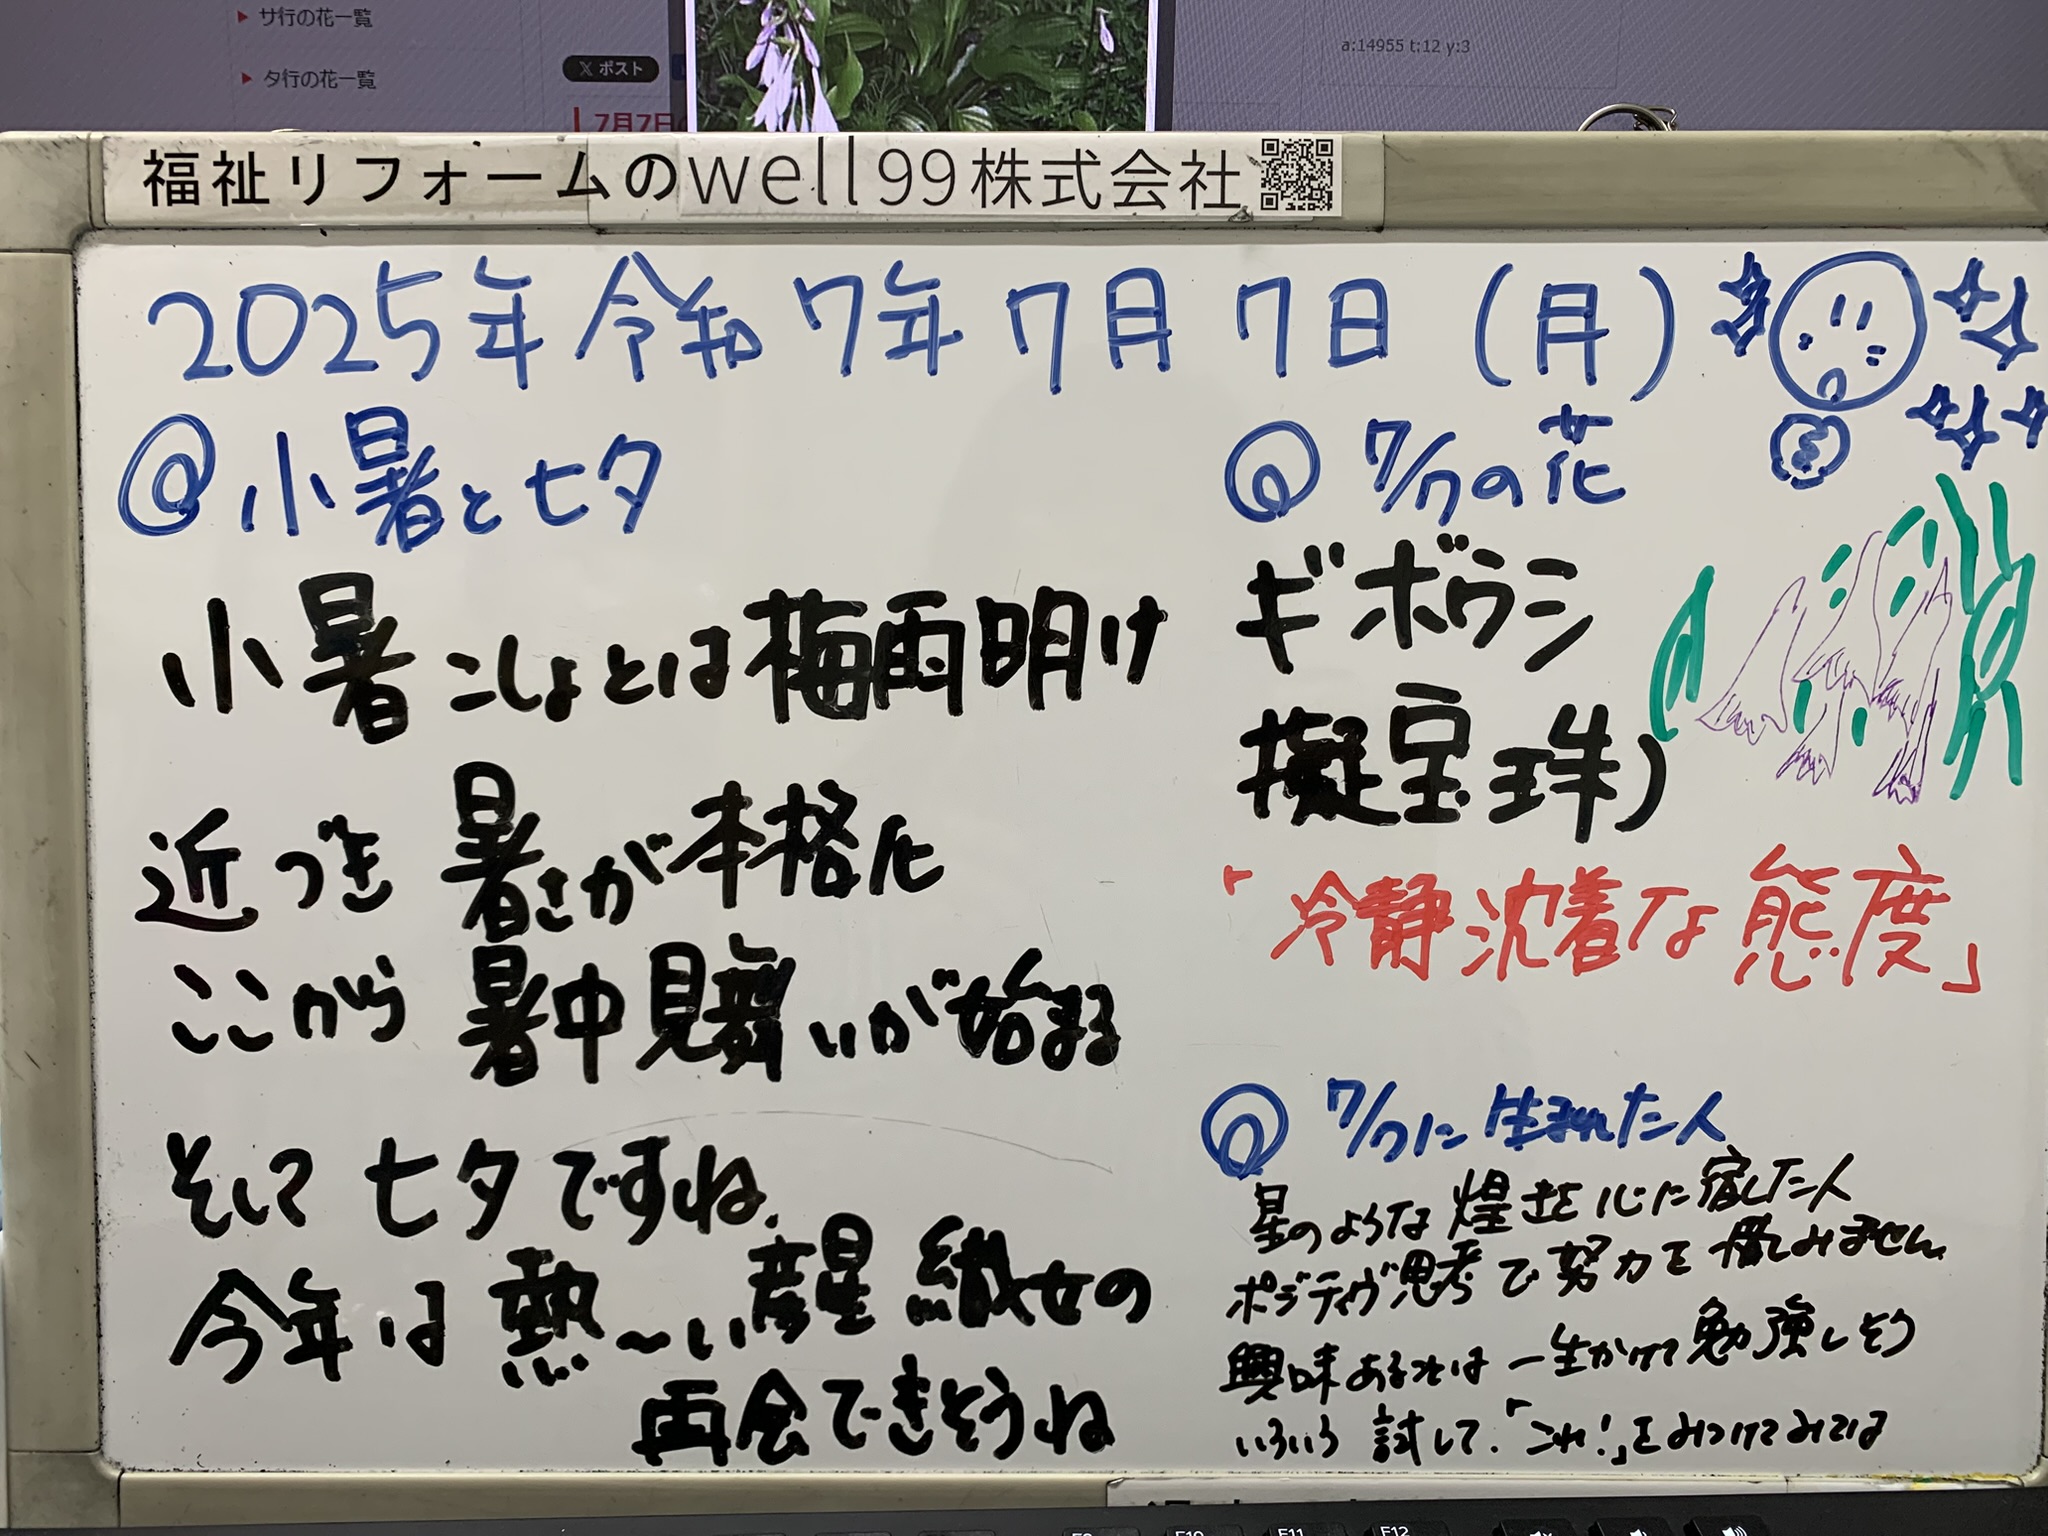 サ行の花一覧
タ行の花一覧
X ポスト
7月7日
a:14955 t:12 y:3
福祉リフォームのwell99株式会社
2025年令和7年7月7日(月)
@小暑と七夕
小暑こしょとは梅雨明け
近づき暑さが本格化
ここから暑中見舞いが始まる
そして七夕ですね.
今年は熱〜い彦星織女の
再会できそうね
@7/7の花
ギボウシ
擬宝珠)
「冷静沈着な態度」
@7/7に生まれた人
星のような煌きを心に宿した人
ポジティヴ思考で努力を惜しみません
興味あることは一生かけて勉強しそう
いろいろ試して.「これ!」をみつけてみては
F9 F10 F11 F12